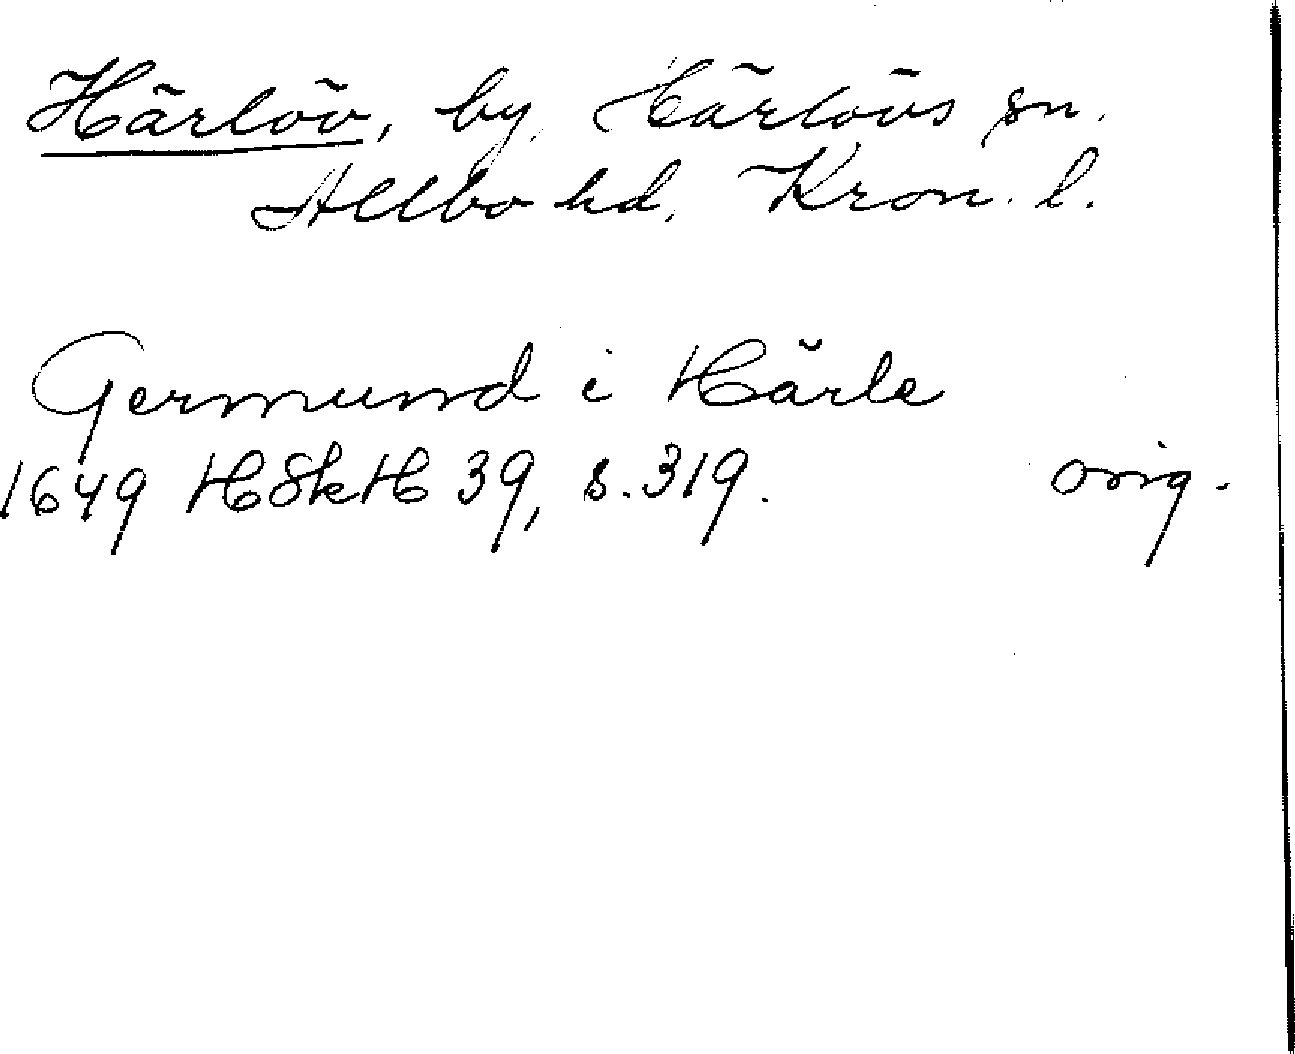 Härlöv, by, Härlövs sn.
Allbo hd, Kron. l.
Germund i Härle
1649 HSkH 39, s. 319. orig.